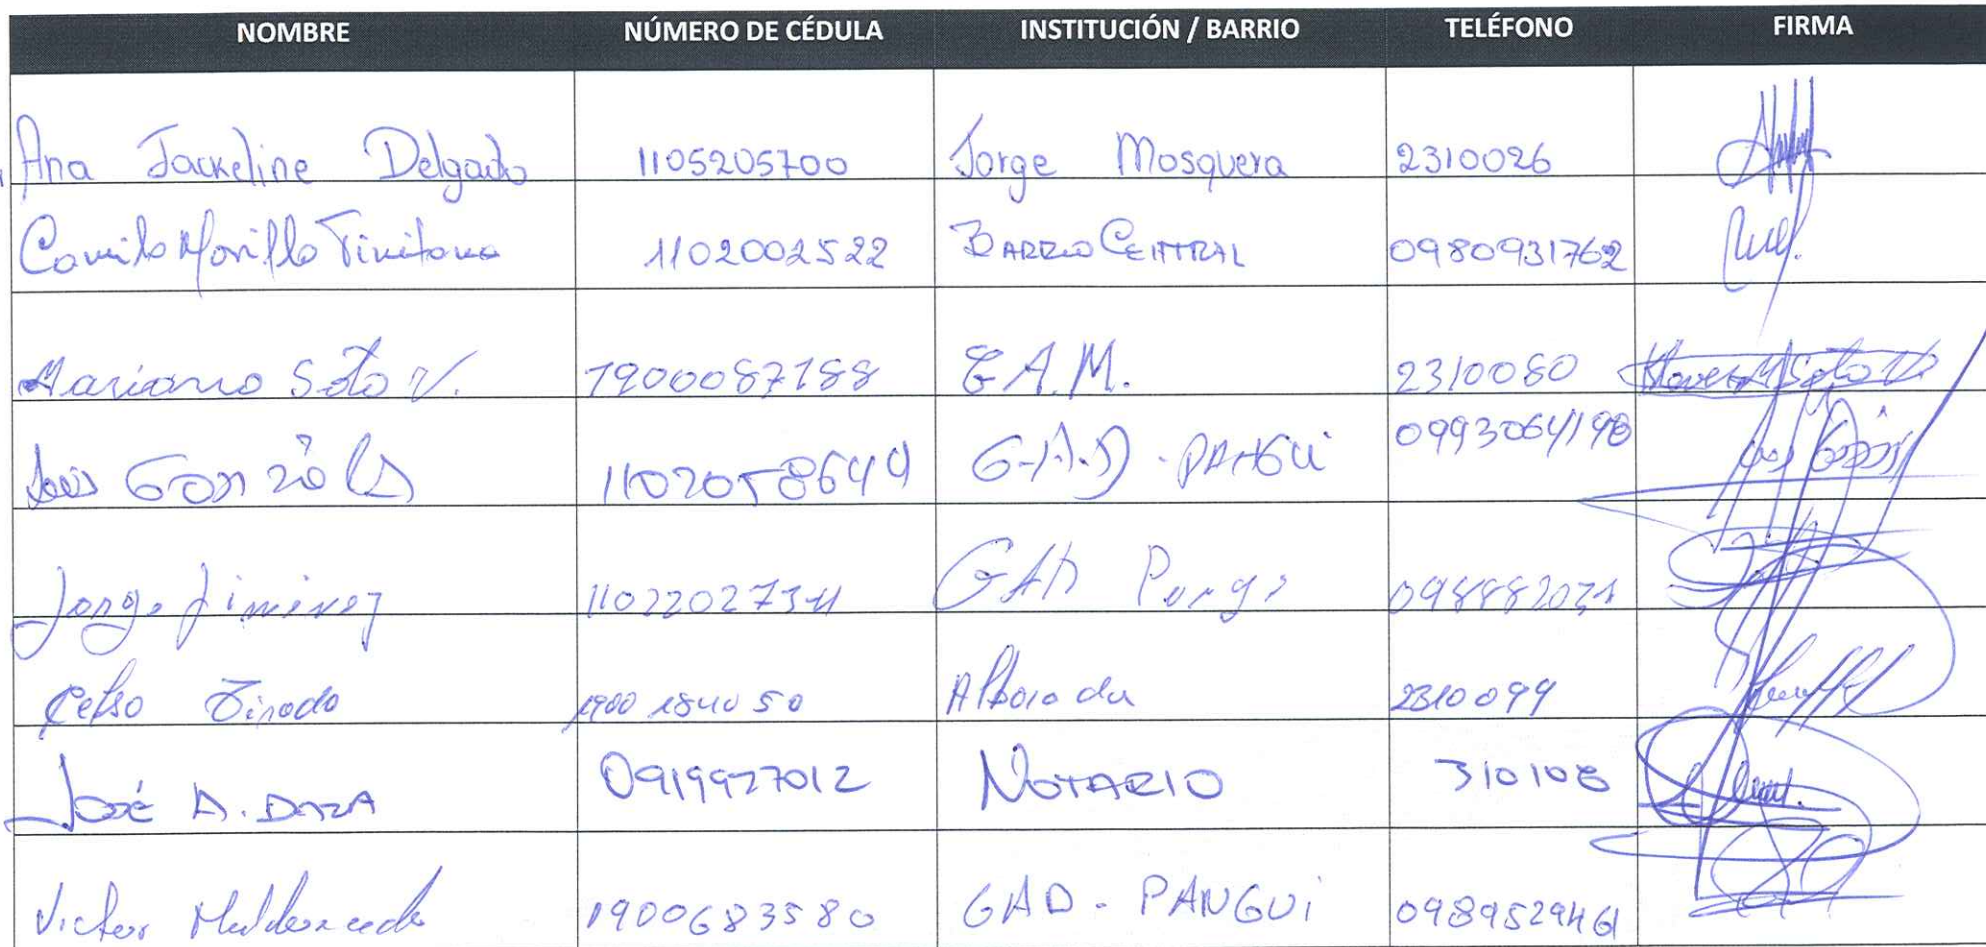 NOMBRE NÚMERO DE CÉDULA INSTITUCIÓN / BARRIO TELÉFONO FIRMA
Ana Jackeline Delgado 1105205700 Jorge Mosquera 2310026
Camilo Morillo Tinitana 1102002522 BARRIO CENTRAL 0980931762
Mariano Soto V. 1900087188 G.A.M. 2310080
Luis González 1102058644 G.A.D - PANGUI 0993064198
Jorge Jiménez GAD
Celso Tirado 1900184050 Alborada 2310099
José A. DAZA 0919927012 NOTARIO 310108
Victor Maldonado 1900683580 GAD - PANGUI 0989529461